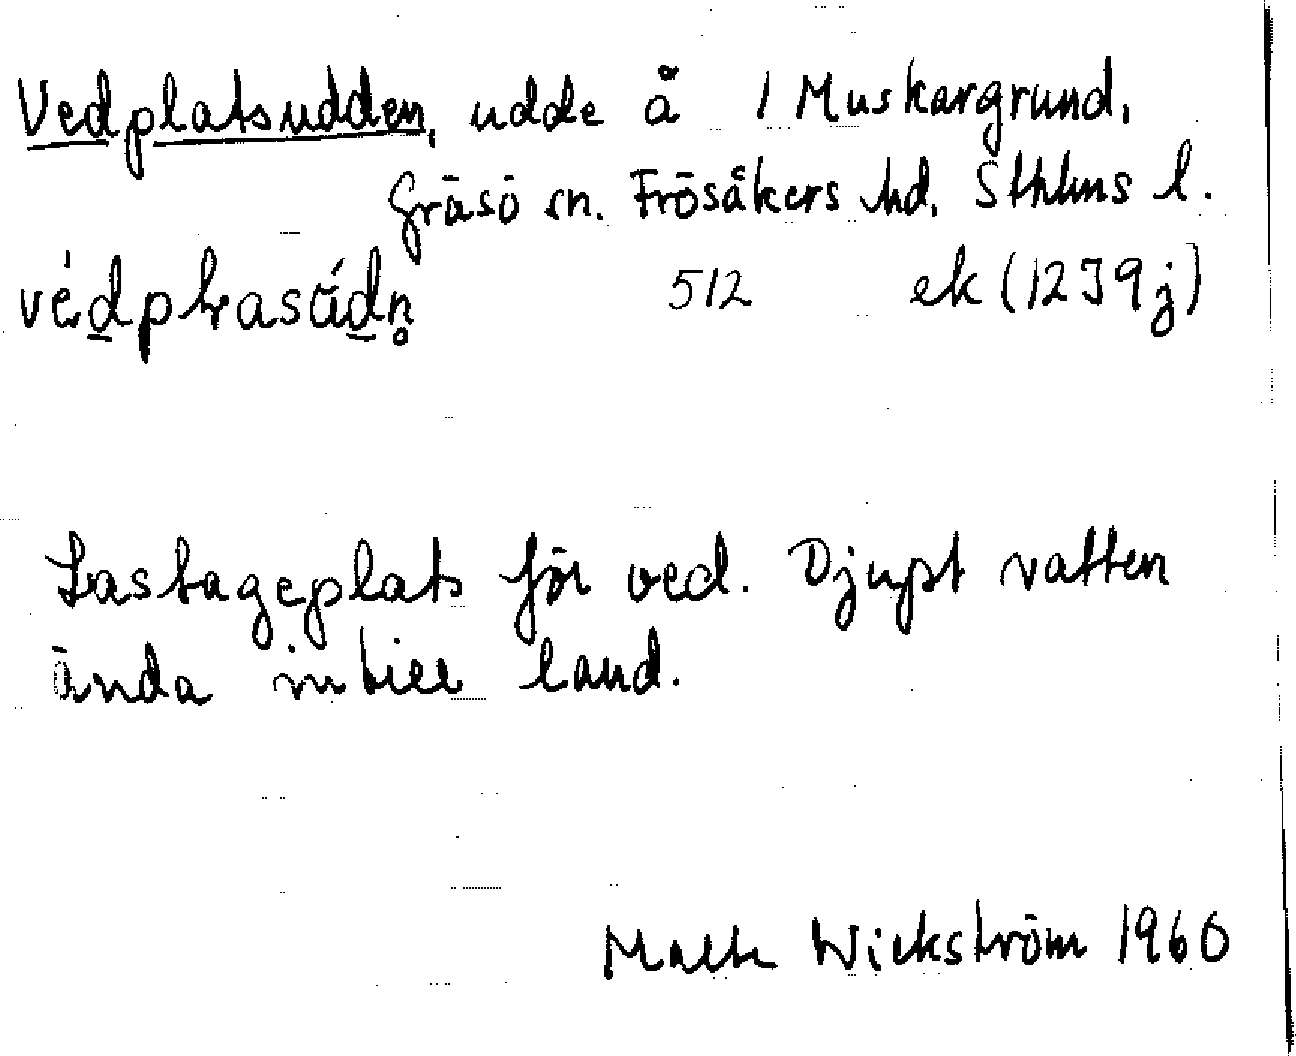 Vedplatsudden, udde å 1 Muskargrund,
Gräsö sn. Frösåkers hd. Sthlms l.
512 ek (12I9j)
Lastageplats för ved. Djupt vatten
ända intill land.
Wickström 1960